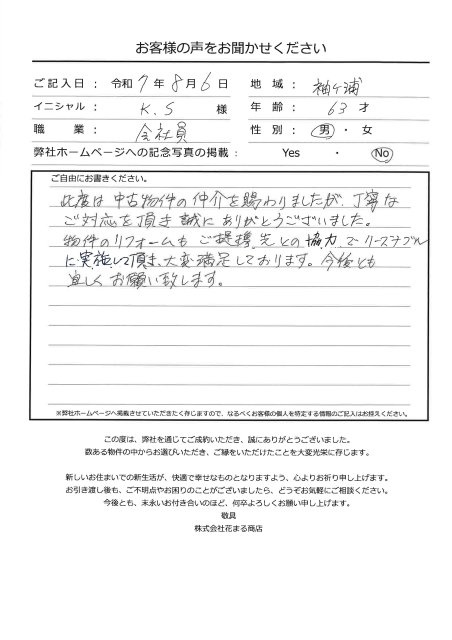 お客様の声をお聞かせください
ご記入日： 令和 7 年 8 月 6 日　地　域： 袖ケ浦
イニシャル： K. S 様　年　齢： 63 才
職　業： 会社員　性　別： 男 ・ 女
弊社ホームページへの記念写真の掲載： Yes ・ No
ご自由にお書きください。
此度は中古物件の仲介を賜わりましたが、丁寧な
ご対応を頂き誠にありがとうございました。
物件のリフォームもご提携先との協力でリーズナブル
に実施して頂き、大変満足しております。今後とも
宜しくお願い致します。
※弊社ホームページへ掲載させていただきたく存じますので、なるべくお客様の個人を特定する情報のご記入はお控えください。
この度は、弊社を通じてご成約いただき、誠にありがとうございました。
数ある物件の中からお選びいただき、ご縁をいただけたことを大変光栄に存じます。
新しいお住まいでの新生活が、快適で幸せなものとなりますよう、心よりお祈り申し上げます。
お引き渡し後も、ご不明点やお困りのことがございましたら、どうぞお気軽にご相談ください。
今後とも、末永いお付き合いのほど、何卒よろしくお願い申し上げます。
敬具
株式会社花まる商店